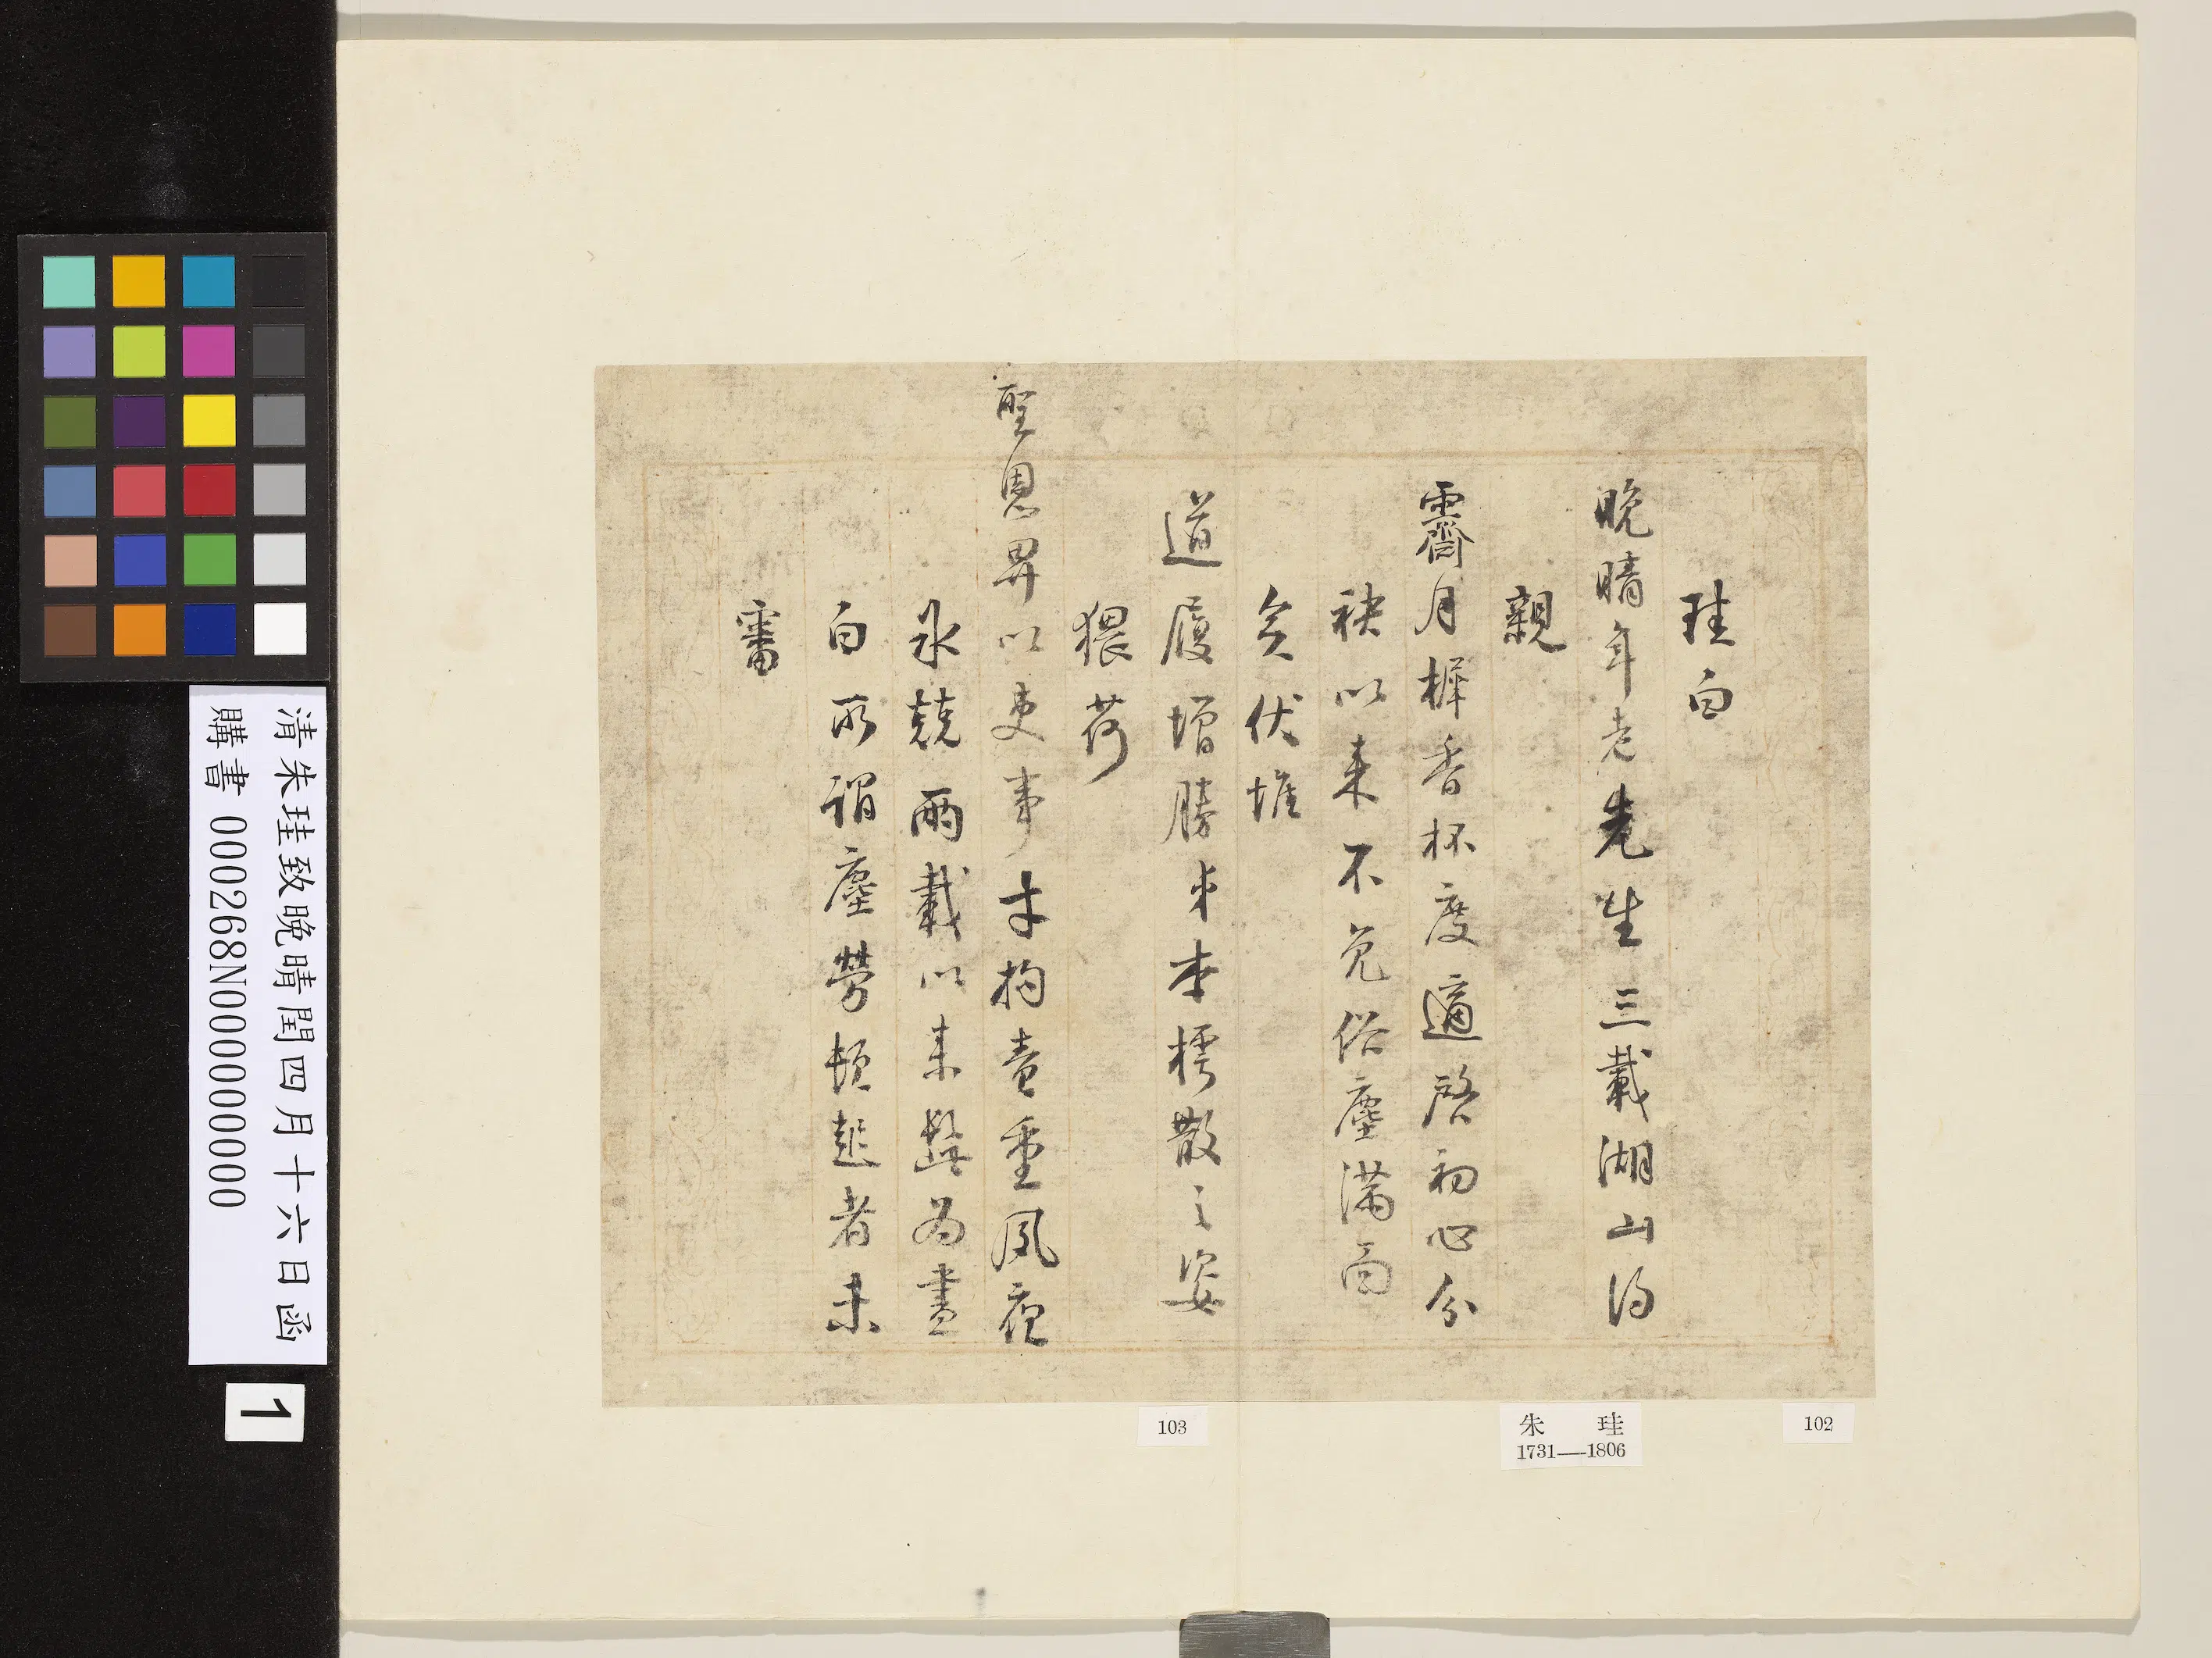 珪白
晚晴年老先生三載湖山得
親
霽月樨香杯度適啓初心分
袂以来不免俗塵滿面
矣伏惟
道履增勝弟本樗散之姿
猥荷
聖恩畀以吏事才拘責重夙夜
氷兢兩載以来鬢為盡
白所謂塵勞頓起者未
審
102
朱 珪
1731—1806
103
清朱珪致晚晴閏四月十六日函
購書 000268N000000000
1